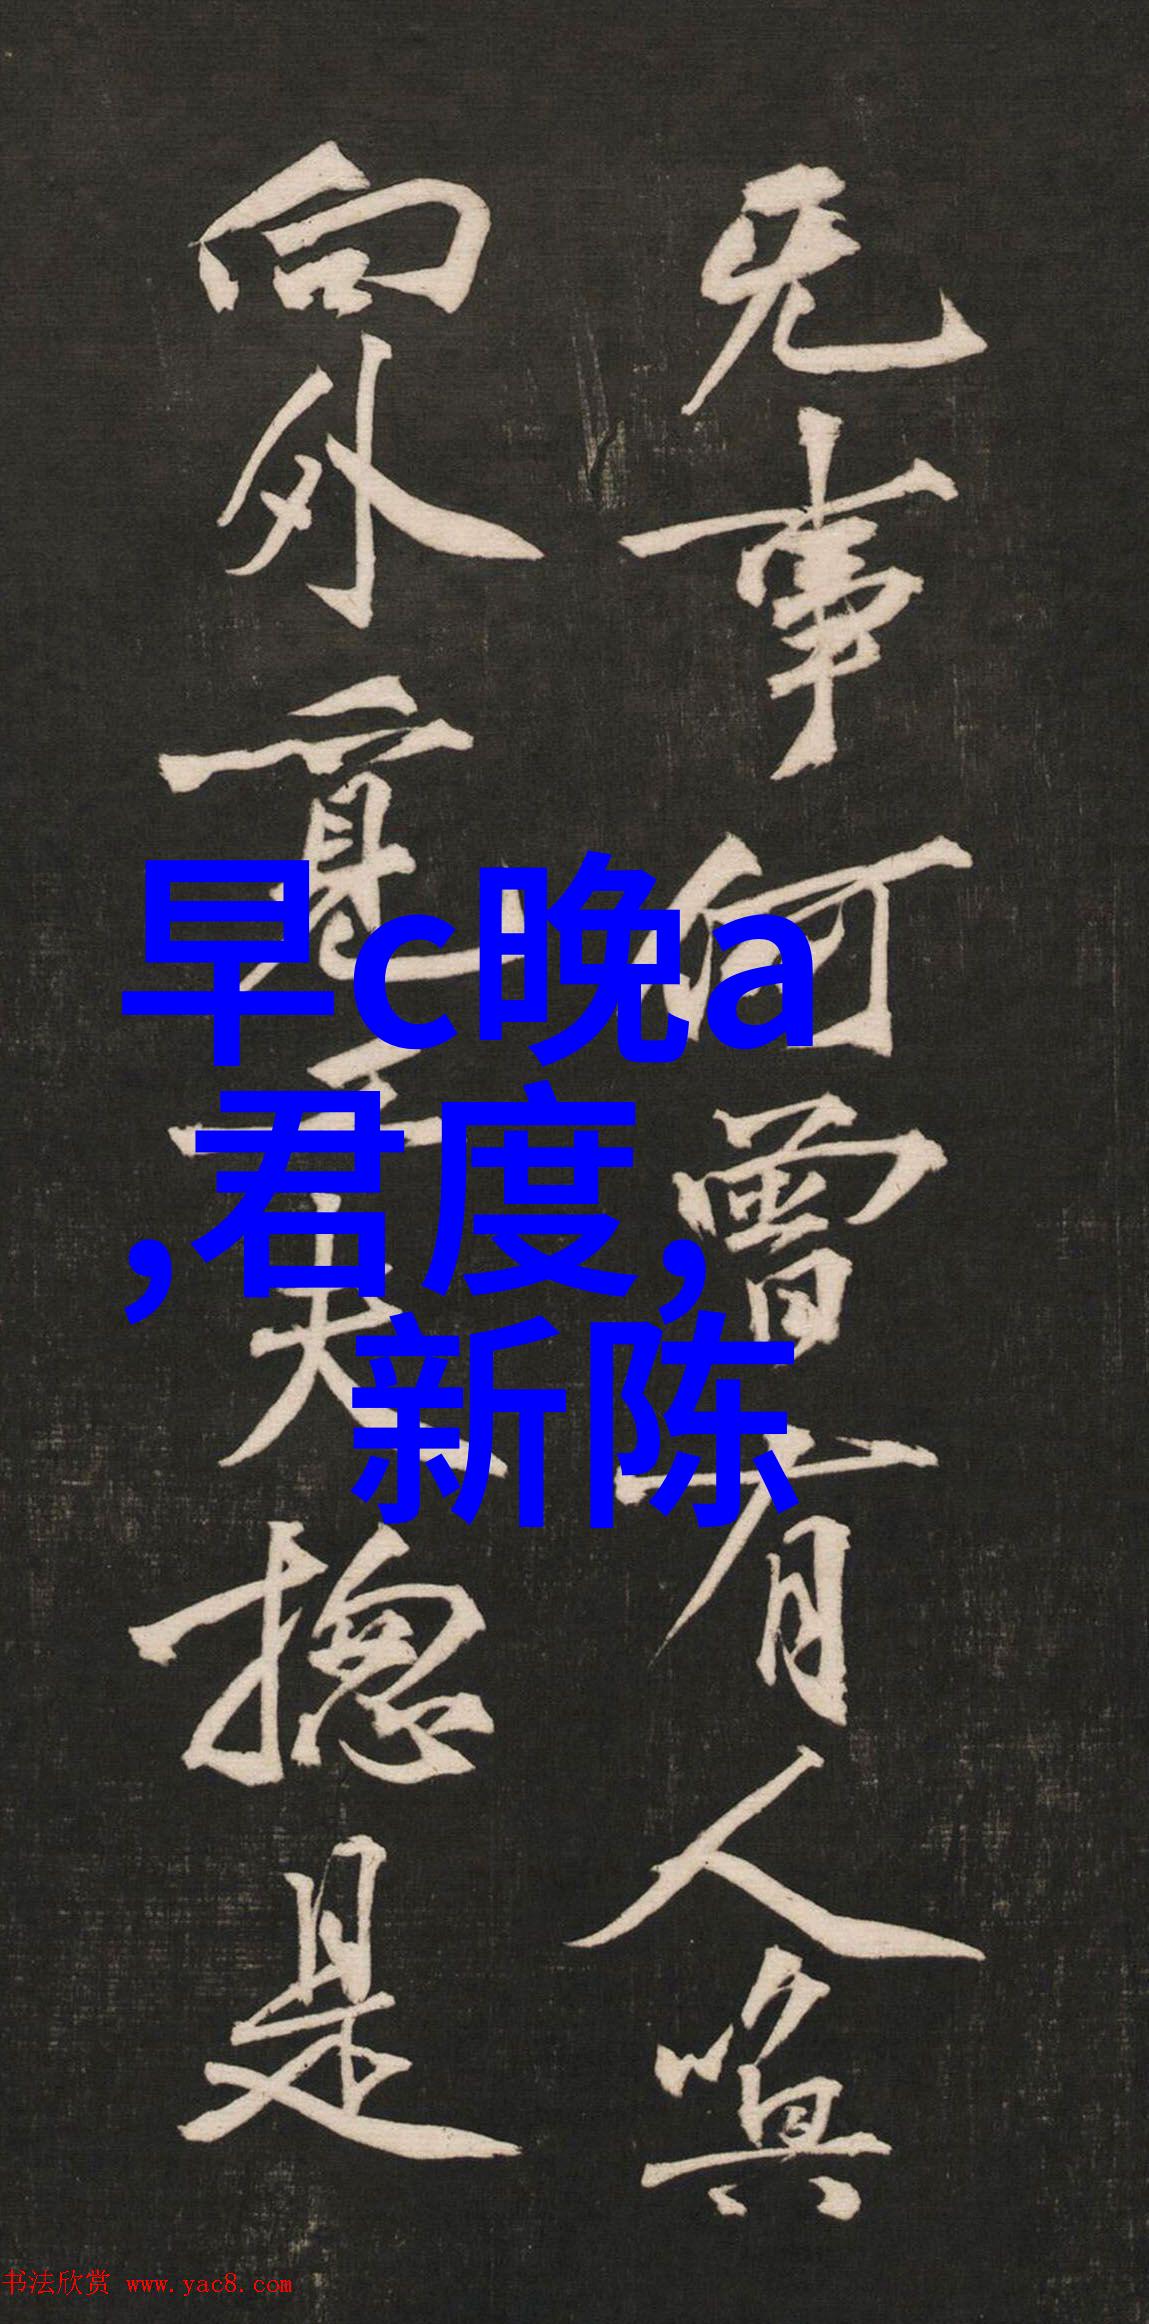 无事何曾有人喚
向外覓工夫揔是
早c晚a
,君度,
新陈
书法欣赏 www.yac8.com